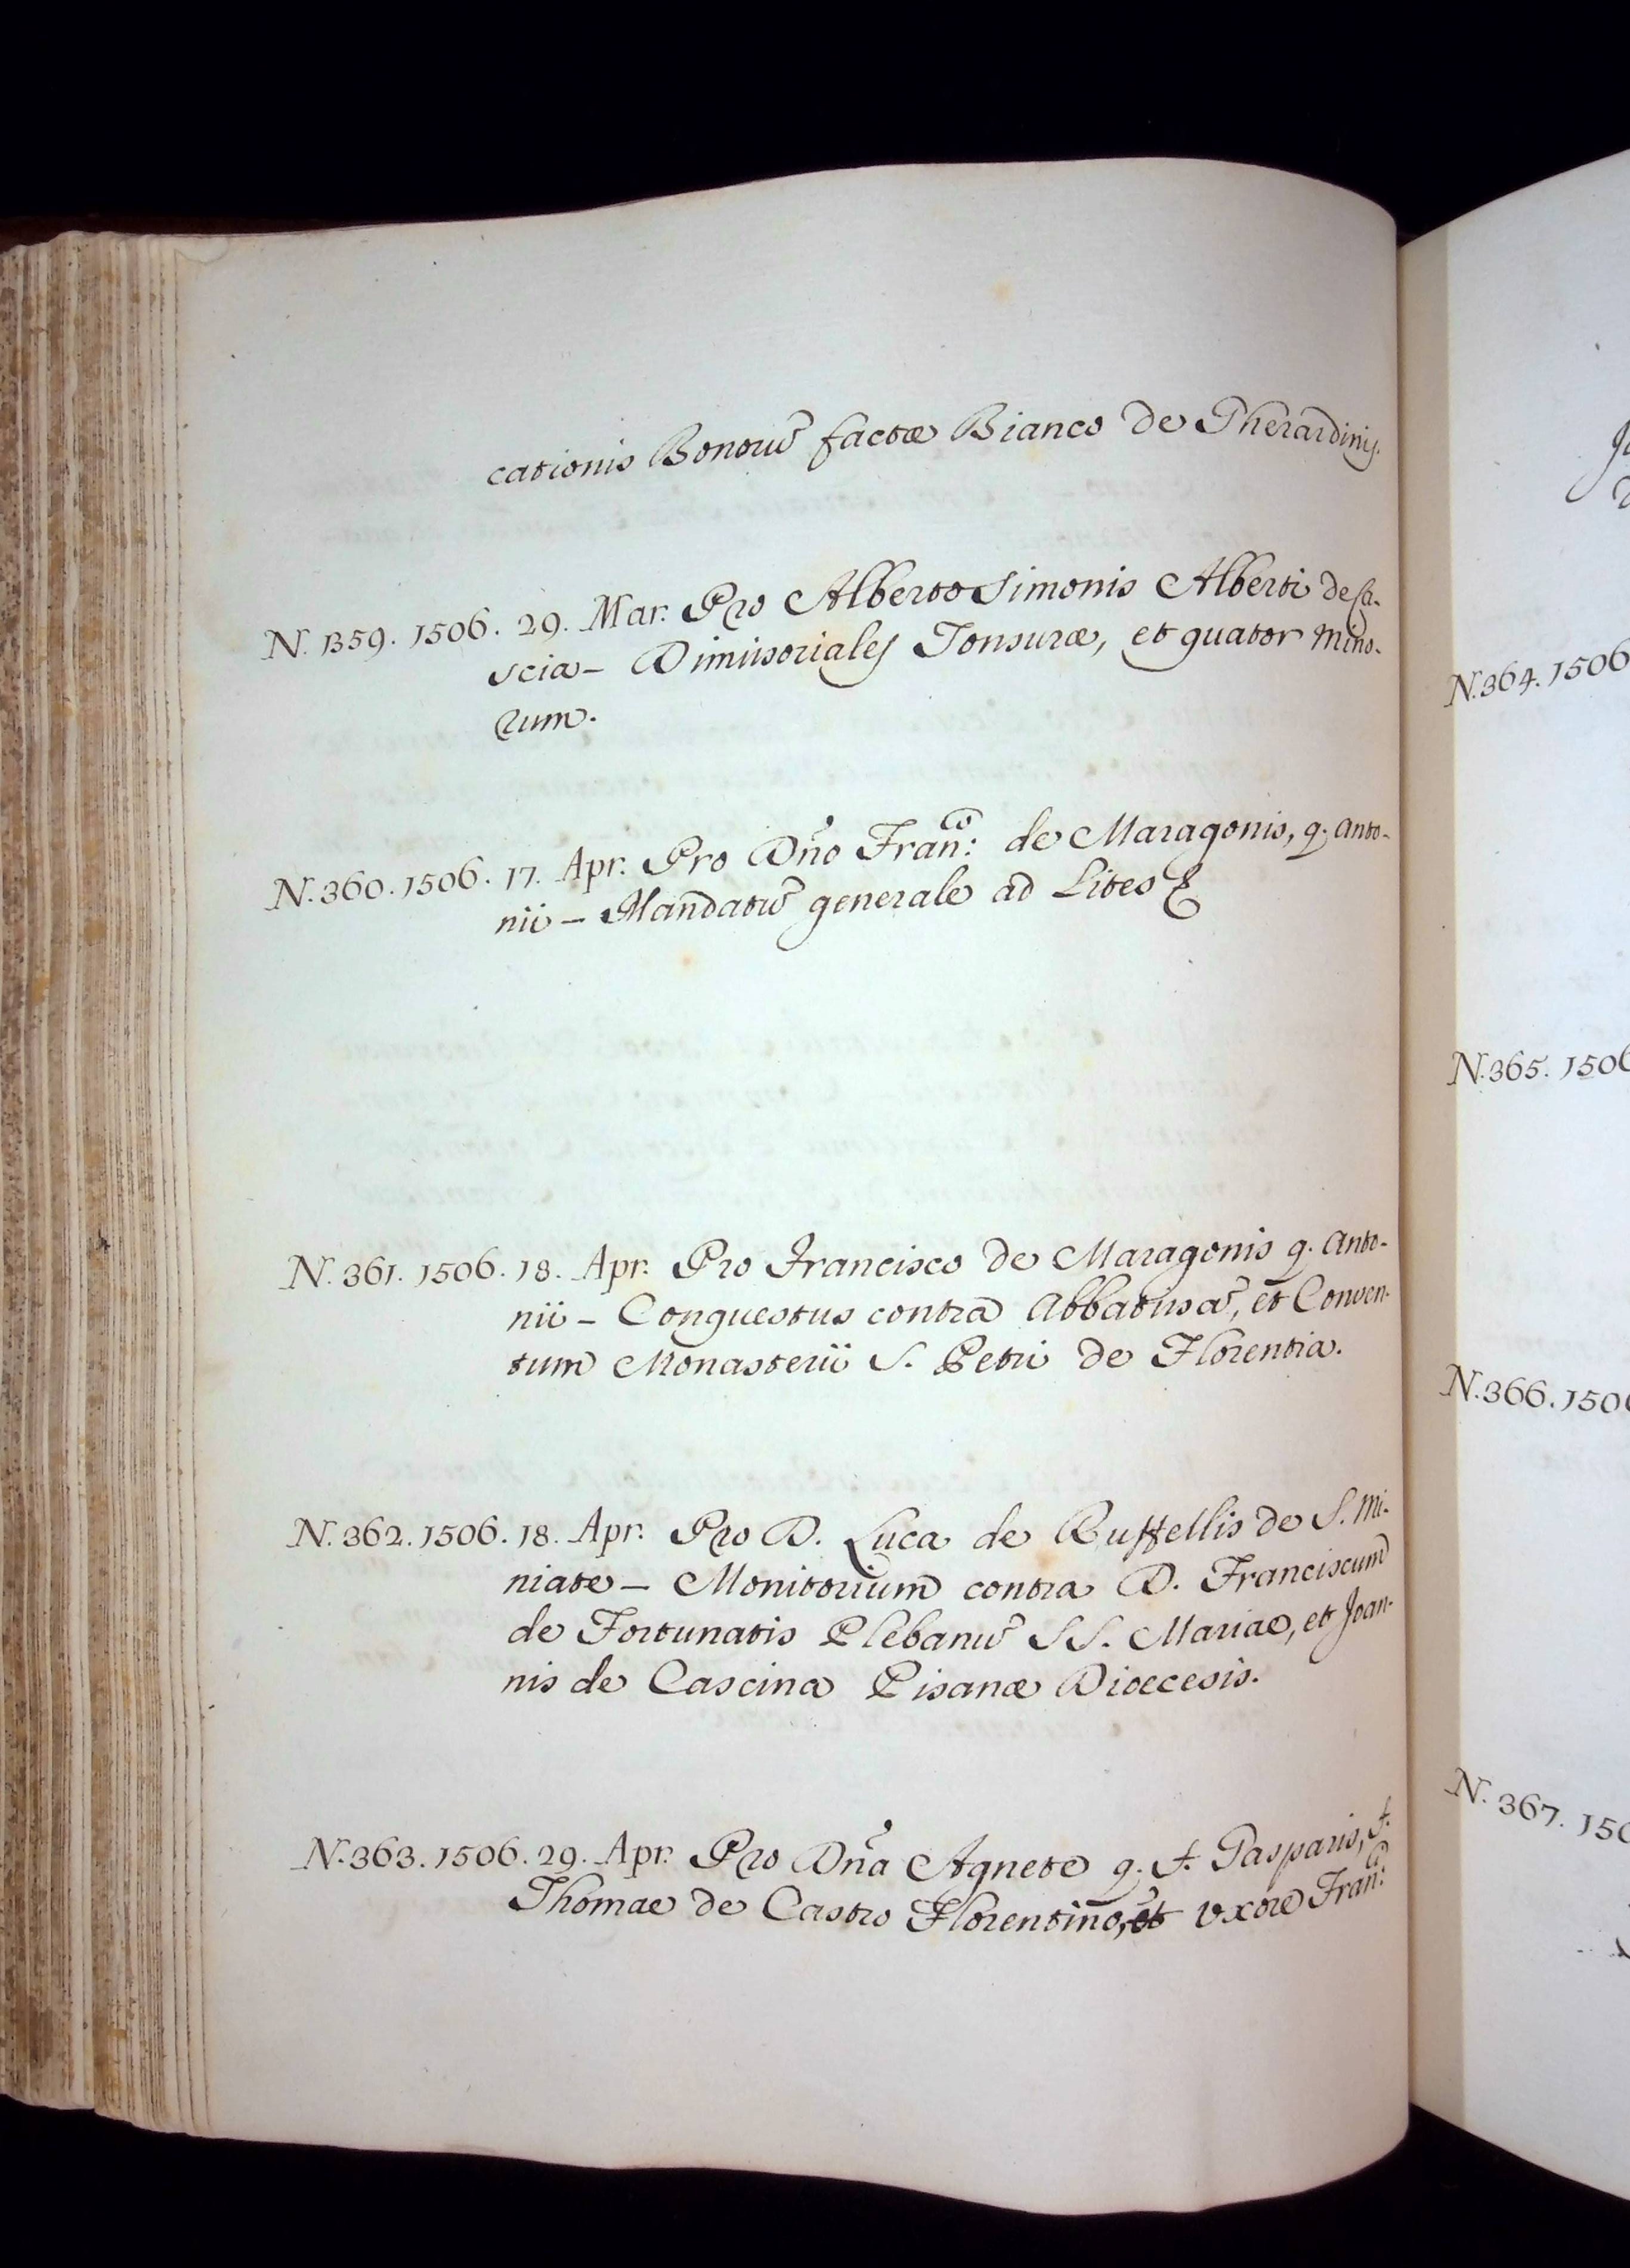 cationis Bonorū factæ Bianco de Gherardinis.
N. 1359. 1506. 29. Mar. Pro Alberto Simonis Alberti de Ca-
scia - Dimissoriales Tonsuræ, et quator Mino-
rum.
N. 360. 1506. 17. Apr. Pro Dño Franco: de Maragonis, q. Anto-
nii - Mandatū generale ad Lites &
N. 361. 1506. 18. Apr. Pro Francisco de Maragonis q. Anto-
nii - Conquestus contra Abbatissā, et Conven-
tum Monasterii S. Petri de Florentia.
N. 362. 1506. 18. Apr. Pro D. Luca de Buffellis de S. Mi-
niate - Monitorium contra D. Franciscum
de Fortunatis Plebanū SS. Mariae, et Joan-
nis de Cascina Pisanæ Dioecesis.
N. 363. 1506. 29. Apr. Pro Dña Agnete q. f. Gasparis, f.
Thomae de Castro Florentino, et uxore Fran:
N. 364. 1506
N. 365. 1506
N. 366. 150
N. 367. 150